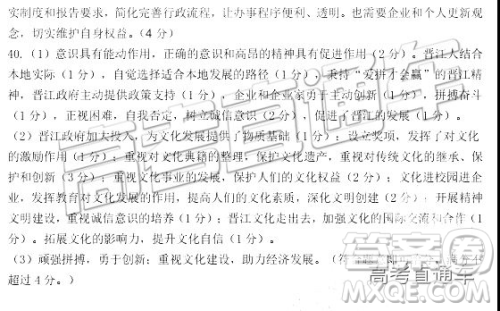 实制度和报告要求，简化完善行政流程，让办事程序便利、透明。也需要企业和个人更新观
念，切实维护自身权益。（4 分）
40.（1）意识具有能动作用，正确的意识和高昂的精神具有促进作用（2 分）。晋江人结合
本地实际（1 分），自觉选择适合本地发展的路径（1 分），秉持“爱拼才会赢”的晋江精
神，晋江政府主动提供政策支持（1 分），企业和企业家勇于主动创新（1 分），拼搏奋斗
（1 分），正视困难，自我否定，树立诚信意识（2 分），促进了晋江的发展（1 分）。
（2）晋江政府加大投入，为文化发展提供了物质基础（1 分）；设立奖项，发挥了对文化
的激励作用（1 分）；重视对文化典籍的整理，保护文化遗产，重视对传统文化的继承、保
护和创新（3 分）；重视文化事业的发展，保护人们的文化权益（2 分）；文化进校园进企
业，发挥教育对文化发展的作用，提高人们的文化素质，深化文明创建（2 分）；开展精神
文明建设，重视诚信意识的培养（1 分）；晋江文化走出去，加强文化的国际交流和合作（1
分）。拓展文化的影响力，提升文化自信（1 分）。
（3）顽强拼搏，勇于创新；重视文化建设，助力经济发展。
超过 4 分。）
高考直通车
答案圈
高考直通车